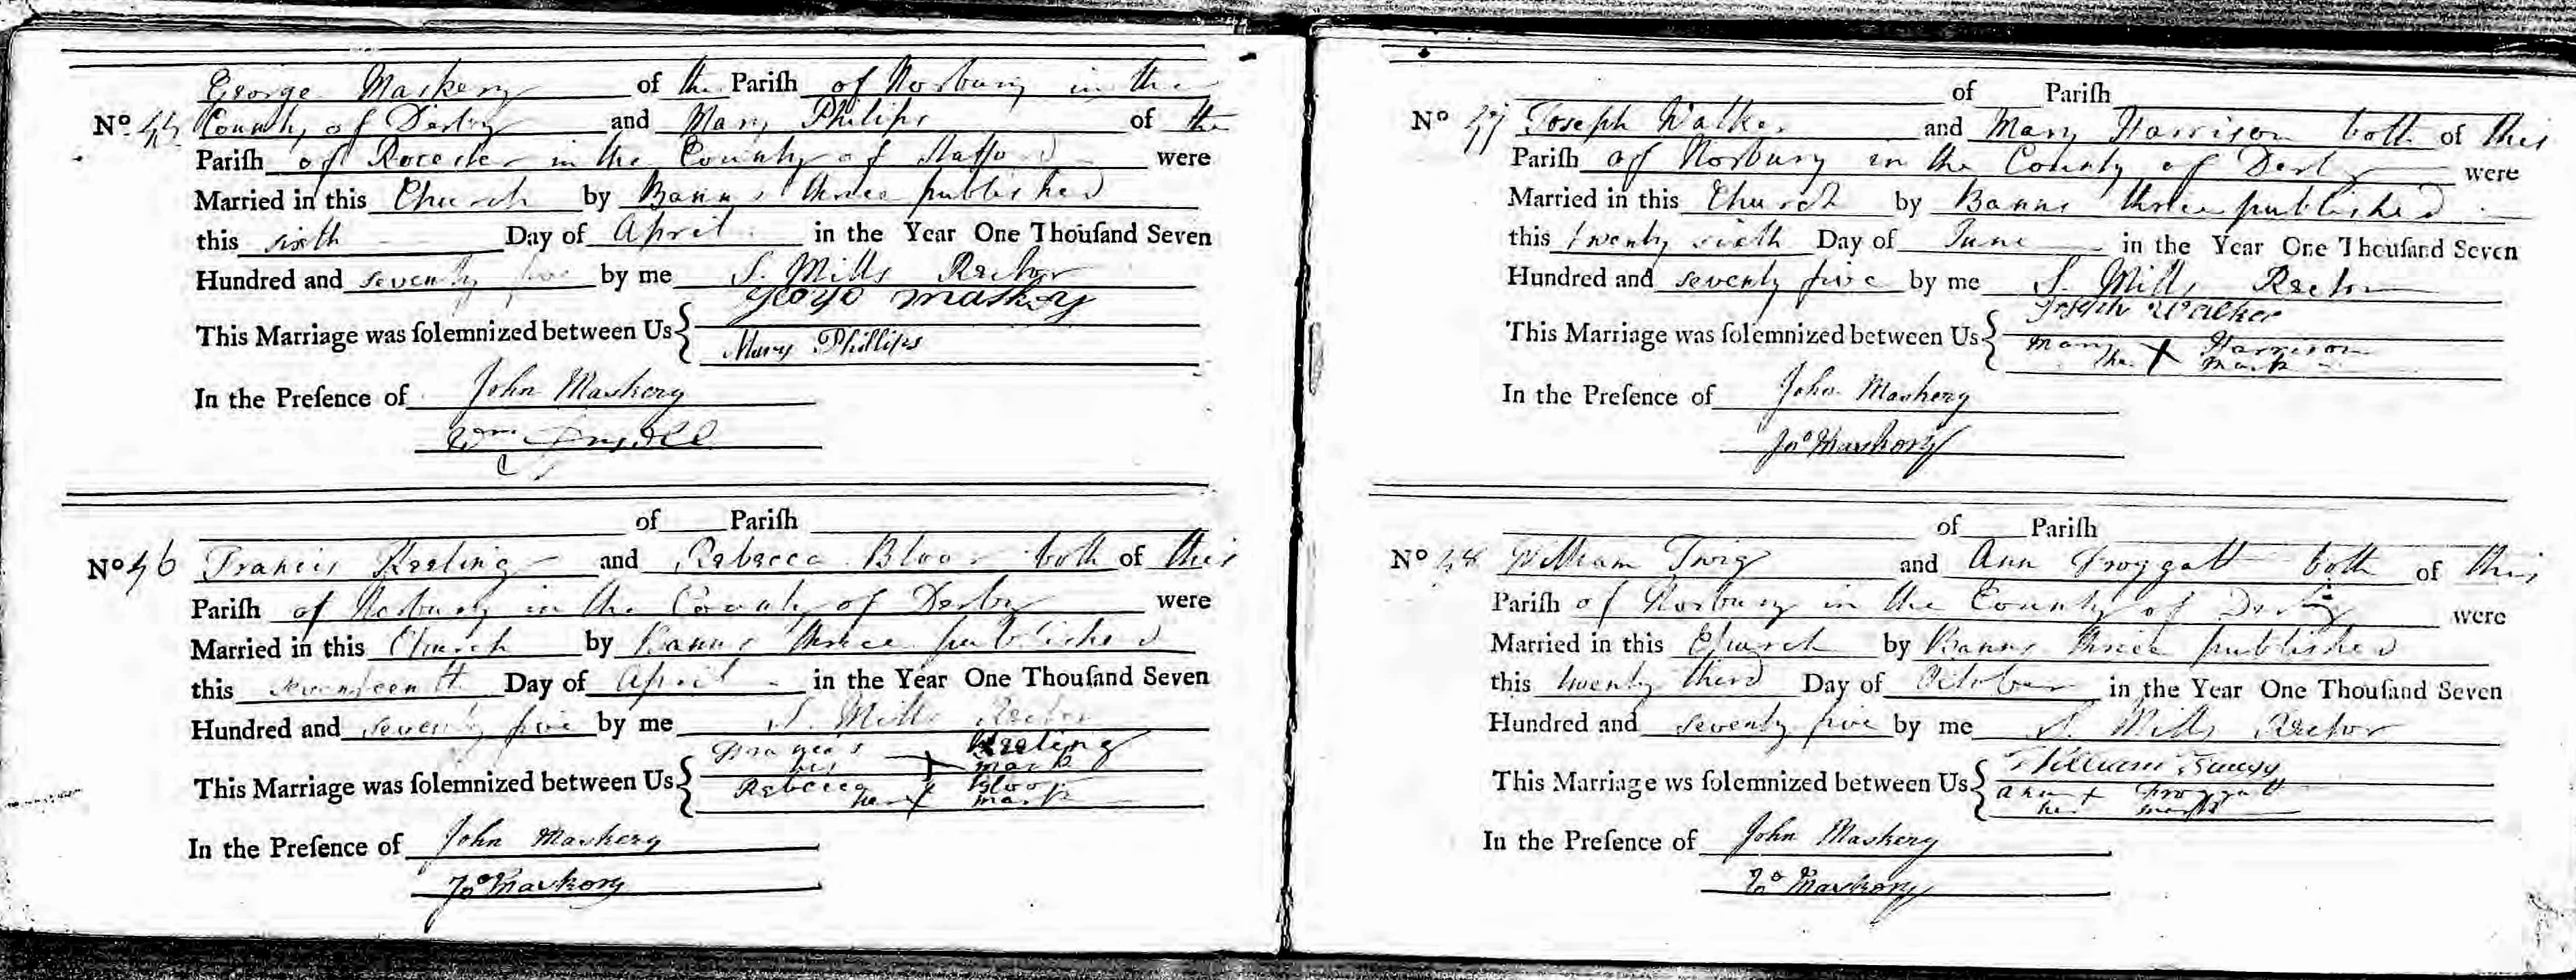 George Maskery of the Pariſh of Norbury in the
No. 45 County of Derby and Mary Philips of the
Pariſh of Rocester in the County of Stafford were
Married in this Church by Banns thrice published
this sixth Day of April in the Year One Thouſand Seven
Hundred and seventy five by me S. Mills Rector
This Marriage was ſolemnized between Us George Maskery
Mary Phillips
In the Preſence of John Maskery
Wm
of Pariſh
No 46 Francis Keeling and Rebecca Bloor both of this
Pariſh of Norbury in the County of Derby were
Married in this Church by Banns thrice published
this seventeenth Day of April in the Year One Thouſand Seven
Hundred and seventy five by me S. Mills Rector
Francis + Keeling
his mark
This Marriage was ſolemnized between Us Rebecca + Bloor
her mark
In the Preſence of John Maskery
Jno Maskory
of Pariſh
No 47 Joseph Walker and Mary Harrison both of this
Pariſh of Norbury in the County of Derby were
Married in this Church by Banns thrice published
this twenty sixth Day of June in the Year One Thouſand Seven
Hundred and seventy five by me S. Mills Rector
Joseph Walker
This Marriage was ſolemnized between Us Mary X Harrison
her mark
In the Preſence of John Maskery
Jno Maskory
of Pariſh
No 48 William Twig and Ann Froggatt both of this
Pariſh of Norbury in the County of Derby were
Married in this Church by Banns thrice published
this twenty third Day of October in the Year One Thouſand Seven
Hundred and seventy five by me S. Mills Rector
William
This Marriage ws ſolemnized between Us Ann + Froggatt
her mark
In the Preſence of John Maskery
Jno Maskory